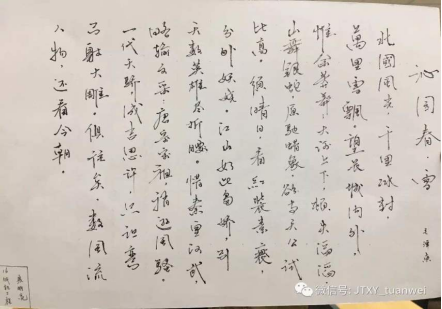 沁园春·雪
毛泽东
北國風光,千里冰封
萬里雪飘,望长城内外,
惟余莽莽,大河上下,顿失滔滔,
山舞銀蛇,原驰蜡象,欲与天公试
比高,须晴日,看红装素裹,
分外妖娆,江山如此多娇,引
无数英雄尽折腰,惜秦皇汉武
略输文采,唐宗宋祖,稍逊风骚,
一代天骄成吉思汗,只识弯
弓射大雕,俱往矣,数風流
人物,还看今朝。
微信号: JTXY_tuanwei